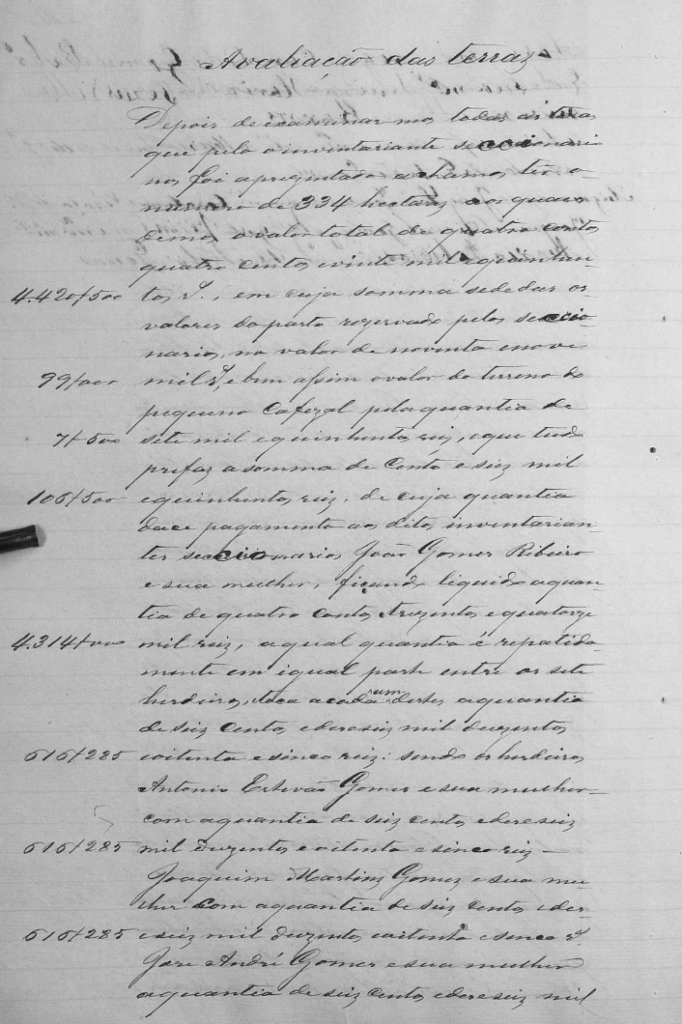 Avaliação das terras
Depois de examinar mos todas as terras
que pelo o inventariante seccionario
nos foi apregintado achamos ter o
numero de 334 hectares aos quaes
demos o valor total de quatro contos
quatro centos e vinte mil e quinhen-
4.420$500 tos rs., em cuja somma se dedus os
valores da parte rezervado pelos seccio-
narios, no valor de noventa e nove
99$000 mil rs, e bem assim o valor do terreno do
pequeno Cafezal pela quantia de
7$500 sete mil e quinhentos reiz, o que tudo
prefas a somma de Cento e seiz mil
106$500 e quinhentos reiz, de cuja quantia
dace pagamento ao ditos inventarian-
tes seccionarios João Gomes Ribeiro
e sua mulher, ficando liquido a quan-
tia de quatro contos trezentos e quatorze
4.314$000 mil reiz, a qual quantia é repatida-
mente em igual parte entre os sete
herdeiros, toca a cada um destes a quantia
de seiz centos e dezeseiz mil duzentos
616$285 e oitenta e sinco reiz: sendo os herdeiros
Antonio Estevão Gomes e sua mulher
com a quantia de seiz centos e dezeseiz
616$285 mil duzentos e oitenta e sinco reiz –
Joaquim Martins Gomes e sua mu-
lher com a quantia de seiz centos e dez-
616$285 e seiz mil duzentos e oitenta e sinco rs.
Jose André Gomes e sua mulher
a quantia de seiz centos e dezeseiz mil